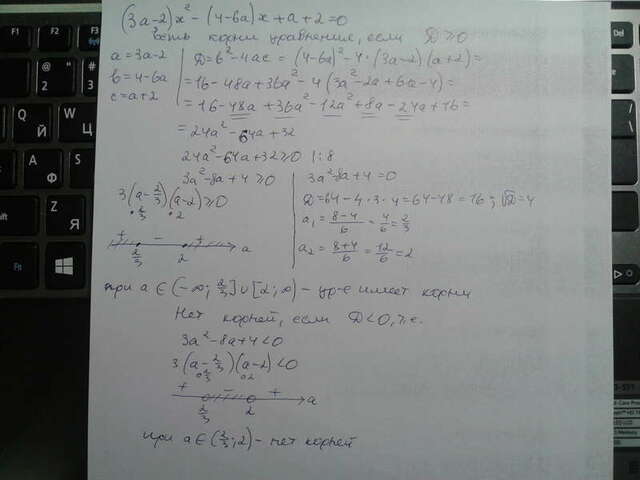 (3a-2)x² - (4-6a)x + a + 2 = 0
есть корни уравнения, если D ≥ 0
a = 3a-2
b = 4-6a
c = a+2
D = b² - 4ac = (4-6a)² - 4·(3a-2)(a+2) =
= 16 - 48a + 36a² - 4(3a² - 2a + 6a - 4) =
= 16 - 48a + 36a² - 12a² + 8a - 24a + 16 =
= 24a² - 64a + 32
24a² - 64a + 32 ≥ 0 | : 8
3a² - 8a + 4 ≥ 0
3(a - 2/3)(a - 2) ≥ 0
2/3 2
+ - + a
2/3 2
3a² - 8a + 4 = 0
D = 64 - 4·3·4 = 64 - 48 = 16; √D = 4
a₁ = (8-4)/6 = 4/6 = 2/3
a₂ = (8+4)/6 = 12/6 = 2
при a ∈ (-∞; 2/3] ∪ [2; ∞) - ур-е имеет корни
Нет корней, если D < 0, т.е.
3a² - 8a + 4 < 0
3(a - 2/3)(a - 2) < 0
2/3 2
+ - + a
2/3 2
при a ∈ (2/3; 2) - нет корней
F1
F2
Й
Ф
Я
Fn